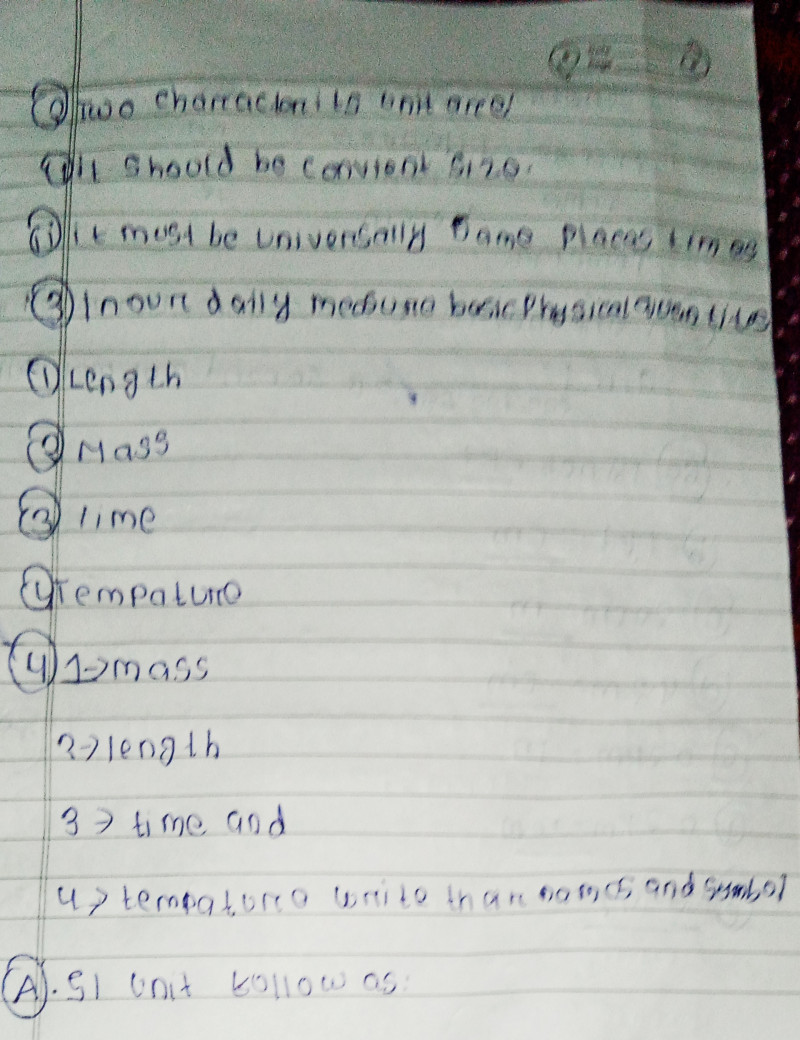 ② Two characterists unit are!
① It should be convient size.
② it must be universally same places times
③ In our daily measure basic physical quantities
① Length
② Mass
③ Time
④ Tempature
④ 1→mass
2→length
3→ time and
4→ tempature write thar names and symbol
Ⓐ. SI unit follow as: